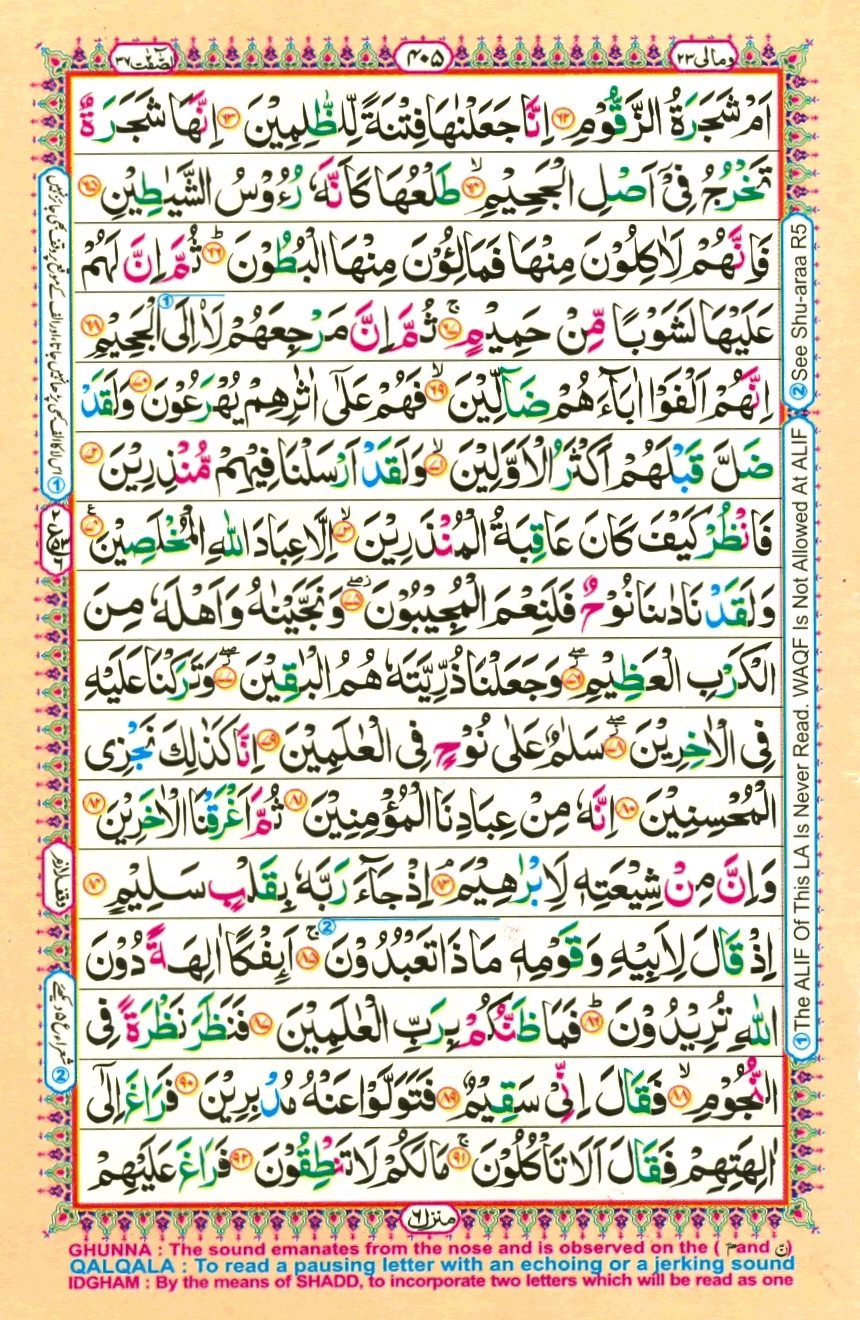 ومالی ٢٣
٤٠٥
الصّٰٓفّٰت ٣٧
اَمْ شَجَرَةُ الزَّقُّوْمِ ﴿٦٢﴾ اِنَّا جَعَلْنٰهَا فِتْنَةً لِّلظّٰلِمِيْنَ ﴿٦٣﴾ اِنَّهَا شَجَرَةٌ
تَخْرُجُ فِيْٓ اَصْلِ الْجَحِيْمِ ۙ﴿٦٤﴾ طَلْعُهَا كَاَنَّهٗ رُءُوْسُ الشَّيٰطِيْنِ ﴿٦٥﴾
فَاِنَّهُمْ لَاٰكِلُوْنَ مِنْهَا فَمَالِـُٔوْنَ مِنْهَا الْبُطُوْنَ ؕ﴿٦٦﴾ ثُمَّ اِنَّ لَهُمْ
عَلَيْهَا لَشَوْبًا مِّنْ حَمِيْمٍ ۚ﴿٦٧﴾ ثُمَّ اِنَّ مَرْجِعَهُمْ لَا۠اِلَى الْجَحِيْمِ ﴿٦٨﴾
اِنَّهُمْ اَلْفَوْا اٰبَآءَهُمْ ضَآلِّيْنَ ۙ﴿٦٩﴾ فَهُمْ عَلٰٓى اٰثٰرِهِمْ يُهْرَعُوْنَ ﴿٧٠﴾ وَلَقَدْ
ضَلَّ قَبْلَهُمْ اَكْثَرُ الْاَوَّلِيْنَ ۙ﴿٧١﴾ وَلَقَدْ اَرْسَلْنَا فِيْهِمْ مُّنْذِرِيْنَ ﴿٧٢﴾
فَانْظُرْ كَيْفَ كَانَ عَاقِبَةُ الْمُنْذَرِيْنَ ۙ﴿٧٣﴾ اِلَّا عِبَادَ اللّٰهِ الْمُخْلَصِيْنَ ﴿٧٤﴾ع
وَلَقَدْ نَادٰىنَا نُوْحٌ فَلَنِعْمَ الْمُجِيْبُوْنَ ۖ﴿٧٥﴾ وَنَجَّيْنٰهُ وَاَهْلَهٗ مِنَ
الْكَرْبِ الْعَظِيْمِ ۖ﴿٧٦﴾ وَجَعَلْنَا ذُرِّيَّتَهٗ هُمُ الْبٰقِيْنَ ۖ﴿٧٧﴾ وَتَرَكْنَا عَلَيْهِ
فِى الْاٰخِرِيْنَ ۖ﴿٧٨﴾ سَلٰمٌ عَلٰى نُوْحٍ فِى الْعٰلَمِيْنَ ﴿٧٩﴾ اِنَّا كَذٰلِكَ نَجْزِى
الْمُحْسِنِيْنَ ﴿٨٠﴾ اِنَّهٗ مِنْ عِبَادِنَا الْمُؤْمِنِيْنَ ﴿٨١﴾ ثُمَّ اَغْرَقْنَا الْاٰخَرِيْنَ ﴿٨٢﴾
وَاِنَّ مِنْ شِيْعَتِهٖ لَاِبْرٰهِيْمَ ۘ﴿٨٣﴾ اِذْ جَآءَ رَبَّهٗ بِقَلْبٍ سَلِيْمٍ ﴿٨٤﴾
اِذْ قَالَ لِاَبِيْهِ وَقَوْمِهٖ مَاذَا تَعْبُدُوْنَ ۚ﴿٨٥﴾ اَئِفْكًا اٰلِهَةً دُوْنَ
اللّٰهِ تُرِيْدُوْنَ ؕ﴿٨٦﴾ فَمَا ظَنُّكُمْ بِرَبِّ الْعٰلَمِيْنَ ﴿٨٧﴾ فَنَظَرَ نَظْرَةً فِى
النُّجُوْمِ ۙ﴿٨٨﴾ فَقَالَ اِنِّىْ سَقِيْمٌ ﴿٨٩﴾ فَتَوَلَّوْا عَنْهُ مُدْبِرِيْنَ ﴿٩٠﴾ فَرَاغَ اِلٰٓى
اٰلِهَتِهِمْ فَقَالَ اَلَا تَاْكُلُوْنَ ۚ﴿٩١﴾ مَالَكُمْ لَا تَنْطِقُوْنَ ﴿٩٢﴾ فَرَاغَ عَلَيْهِمْ
منزل ٦
② See Shu-araa R5
① The ALIF Of This LA Is Never Read. WAQF Is Not Allowed At ALIF
وقف لازم
GHUNNA : The sound emanates from the nose and is observed on the ( مّ and نّ )
QALQALA : To read a pausing letter with an echoing or a jerking sound
IDGHAM : By the means of SHADD, to incorporate two letters which will be read as one